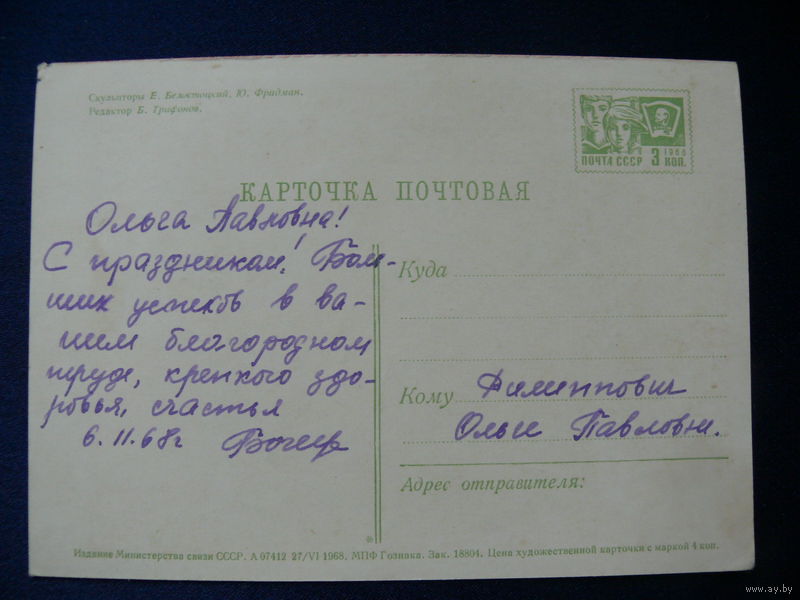 Скульпторы Е. Белостоцкий, Ю. Фридман.
Редактор Б. Трифонов.
1966
ПОЧТА СССР 3 КОП.
КАРТОЧКА ПОЧТОВАЯ
Ольга Павловна!
С праздником! Боль-
ших успехов в ва-
шем благородном
труде, крепкого здо-
ровья, счастья
6.11.68г
Куда
Кому Филиппович
Ольге Павловн.
Адрес отправителя:
Издание Министерства связи СССР. А 07412 27/VI 1968. МПФ Гознака. Зак. 18804. Цена художественной карточки с маркой 4 коп.
www.ay.by